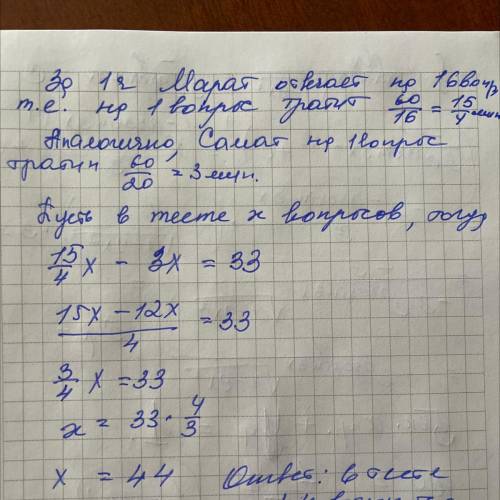 За 1ч Марат отвечает на 16 вопр,
т.е. на 1 вопрос тратит 60/16 = 15/4 мин
Аналогично, Самат на 1 вопрос
тратит 60/20 = 3 мин.
Пусть в тесте x вопросов, тогда
15/4 x - 3x = 33
(15x - 12x)/4 = 33
3/4 x = 33
x = 33 · 4/3
x = 44 Ответ: в тесте